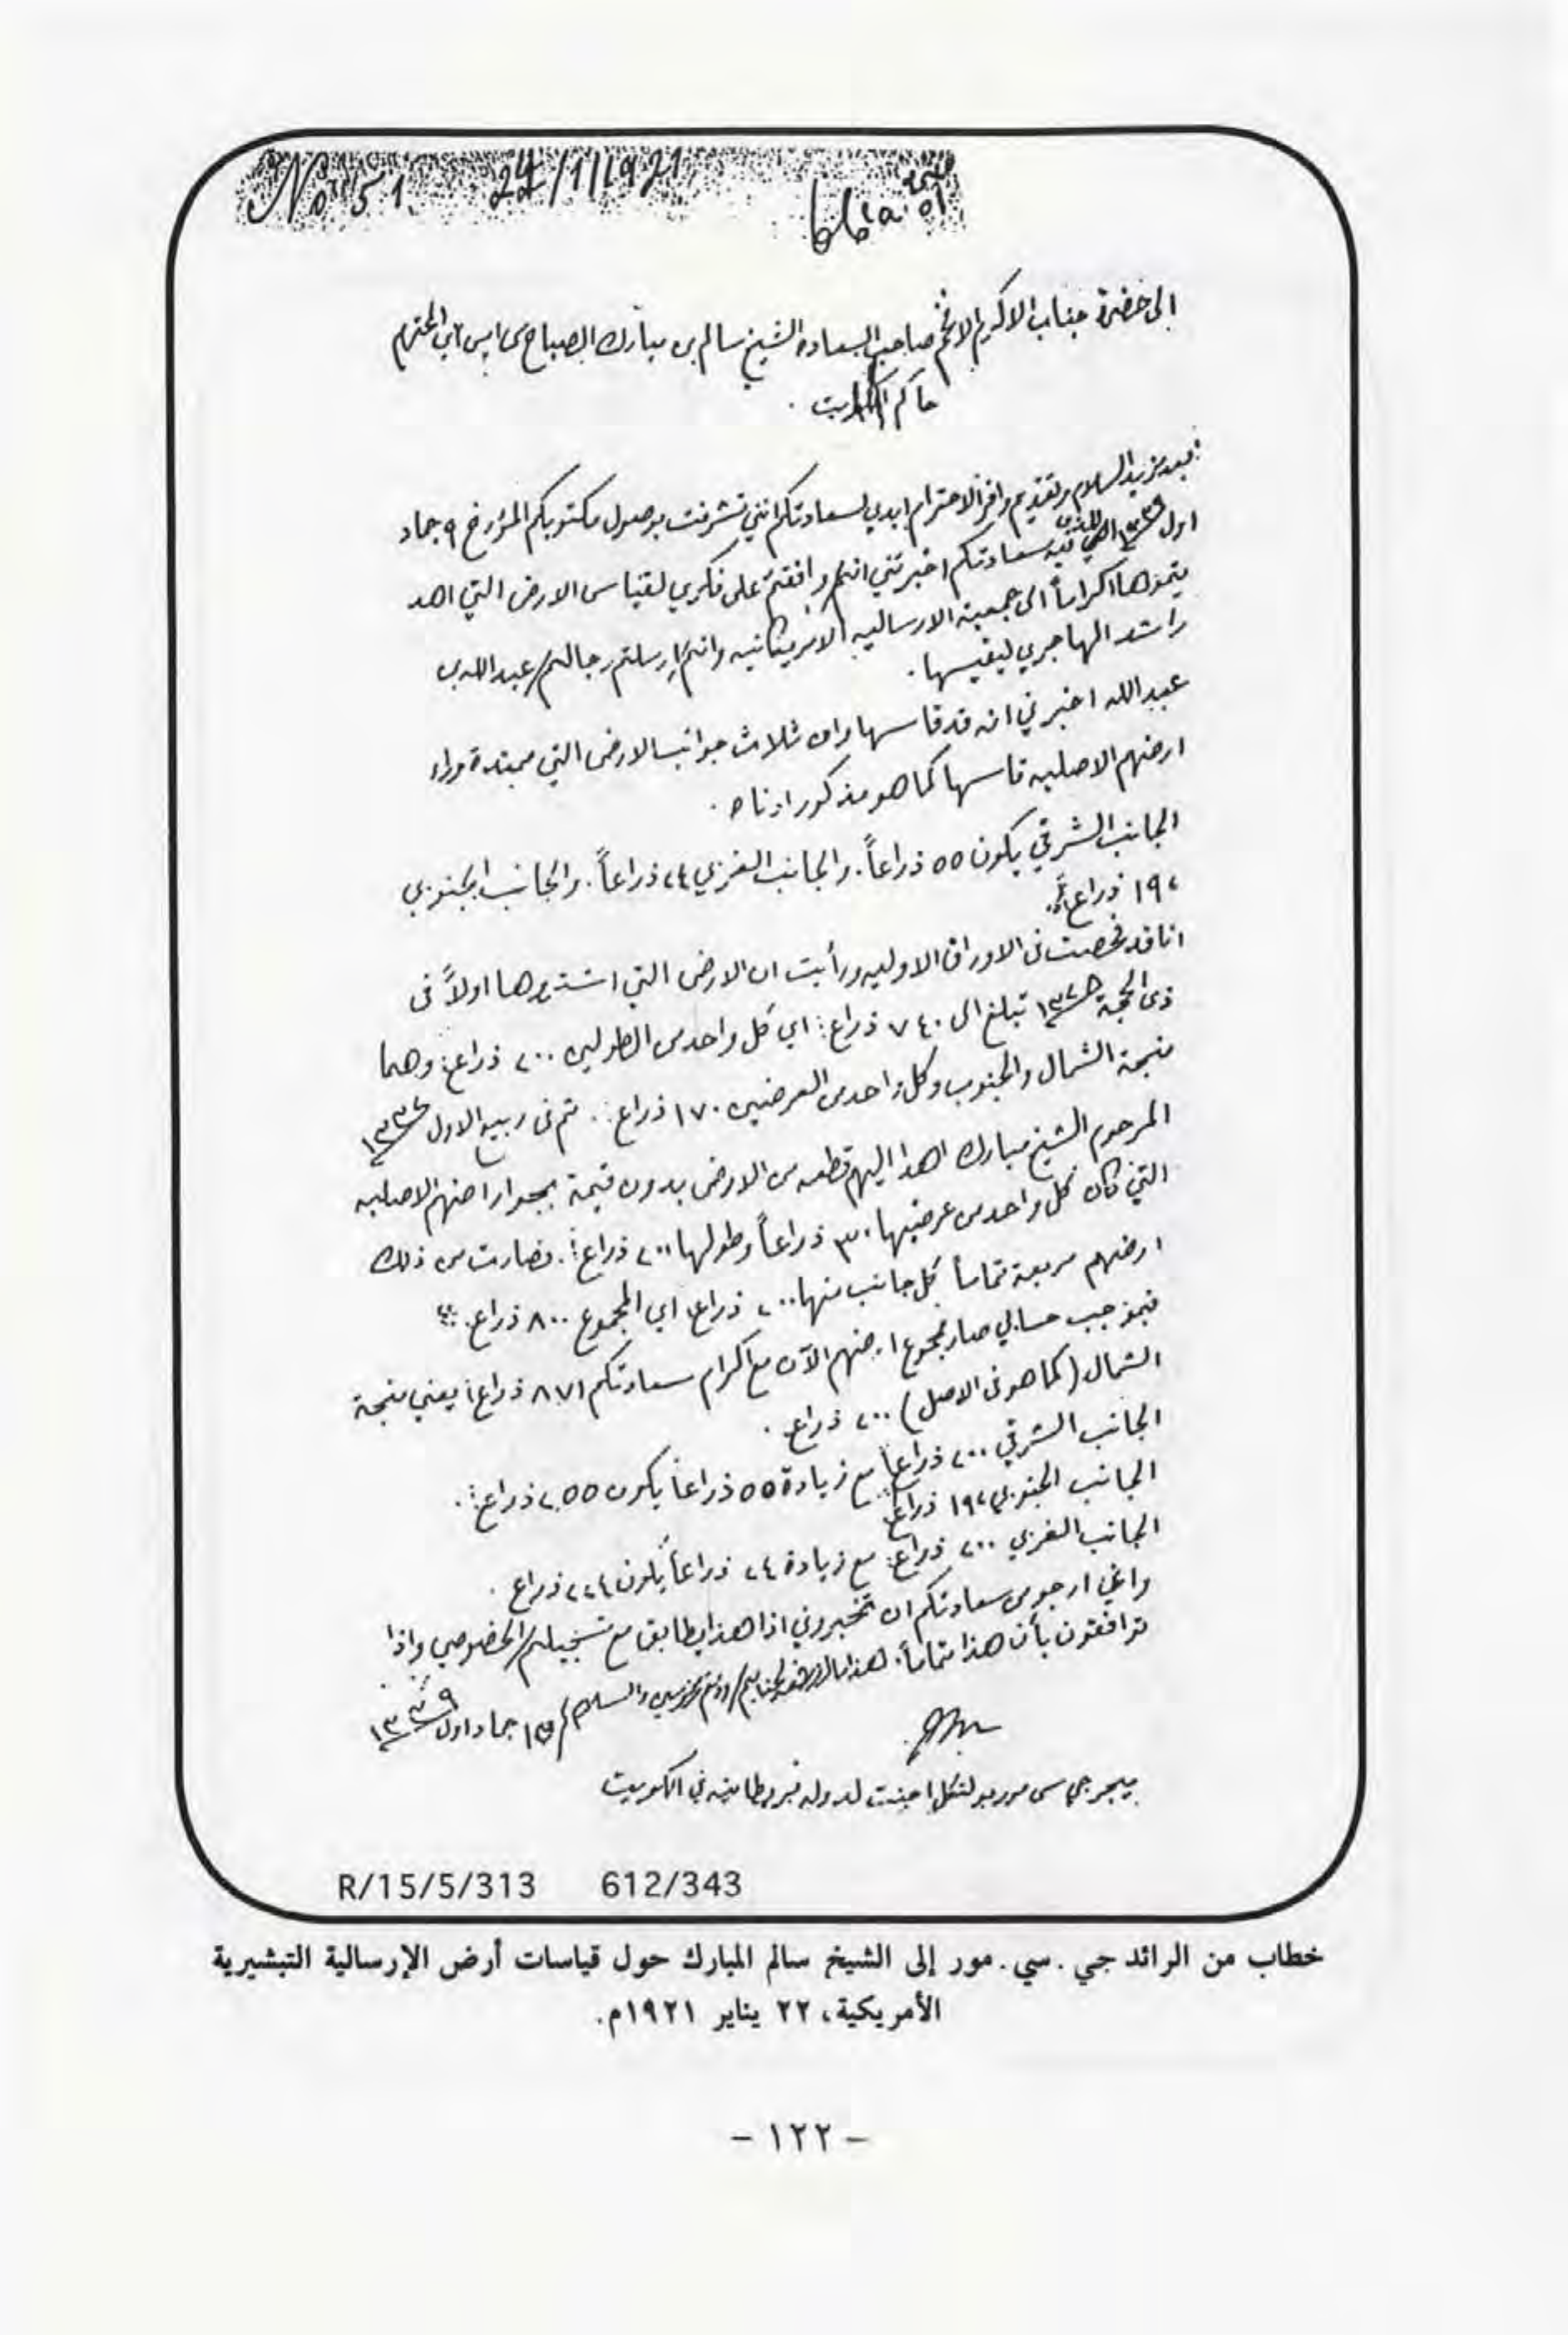 No 51. 22/1/1921
نمبر ٥١
الى حضرة جناب الاكرم الافخم صاحب السعادة الشيخ سالم بن مبارك الصباح سي اس اي المحترم
حاكم الكويت .
بعد مزيد السلام وتقديم وافر الاحترام ابدي لسعادتكم انني تشرفت بوصول مكتوبكم المؤرخ ٩ جماد
اول ١٣٣٩ الذي فيه سعادتكم اخبرتني انكم وافقتم على فكري لقياس الارض التي اهد
يتموها اكراماً الى جمعية الارساليه الامريكانيه وانكم ارسلتم رجالكم عبدالله بن
راشد الهاجري ليقيسها .
عبدالله اخبرني انه قد قاسها وان ثلاث جوانب الارض التي ممتدة وراء
ارضهم الاصليه قاسها كما هو مذكور ادناه .
الجانب الشرقي يكون ٥٥ ذراعاً . والجانب الغربي ٢٤ ذراعاً . والجانب الجنوبي
١٩٢ ذراعاً .
انا قد فحصت في الاوراق الاوليه ورأيت ان الارض التي اشتروها اولاً في
ذي الحجة تبلغ الى ٧٤٠ ذراع : اي كل واحد من الطولين ٢٠٠ ذراع : وهما
منجهة الشمال والجنوب وكل واحد من العرضين ١٧٠ ذراع . ثم في ربيع الاول
المرحوم الشيخ مبارك اهدا اليهم قطعه من الارض بدون قيمة بجوار ارضهم الاصليه
التي كان كل واحد من عرضيها ٣٠ ذراعاً وطولها ٢٠٠ ذراع . فصارت من ذلك
ارضهم مربعة تماماً كل جانب منها ٢٠٠ ذراع اي المجموع ٨٠٠ ذراع
فبموجب حسابي صار مجموع ارضهم الآن مع اكرام سعادتكم ٨٧١ ذراع يعني منجهة
الشمال ( كما هو في الاصل ) ٢٠٠ ذراع .
الجانب الشرقي ٢٠٠ ذراعاً مع زيادة ٥٥ ذراعاً يكون ٢٥٥ ذراع .
الجانب الجنوبي ١٩٢ ذراع
الجانب الغربي ٢٠٠ ذراع مع زيادة ٢٤ ذراعاً يكون ٢٢٤ ذراع .
وانني ارجو من سعادتكم ان تخبروني اذا هذا يطابق مع تسجيلكم الخصوصي واذا
توافقون بأن هذا تماماً . هذا ما لزم لجنابكم ودمتم محروسين والسلام ١٢ جماد اول ١٣٣٩
ميجر جي سي مور بولتكل اجنت لدولة بريطانيه في الكويت
R/15/5/313 612/343
خطاب من الرائد جي . سي . مور إلى الشيخ سالم المبارك حول قياسات أرض الإرسالية التبشيرية
الأمريكية، ٢٢ يناير ١٩٢١م.
- ١٢٢ -